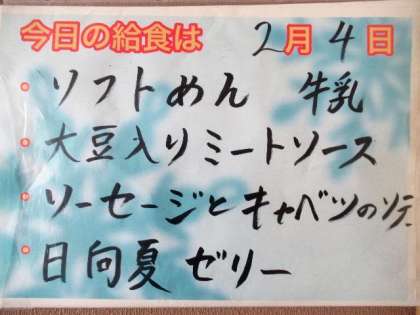 今日の給食は 2月4日
・ソフトめん 牛乳
・大豆入りミートソース
・ソーセージとキャベツのソテ
・日向夏ゼリー